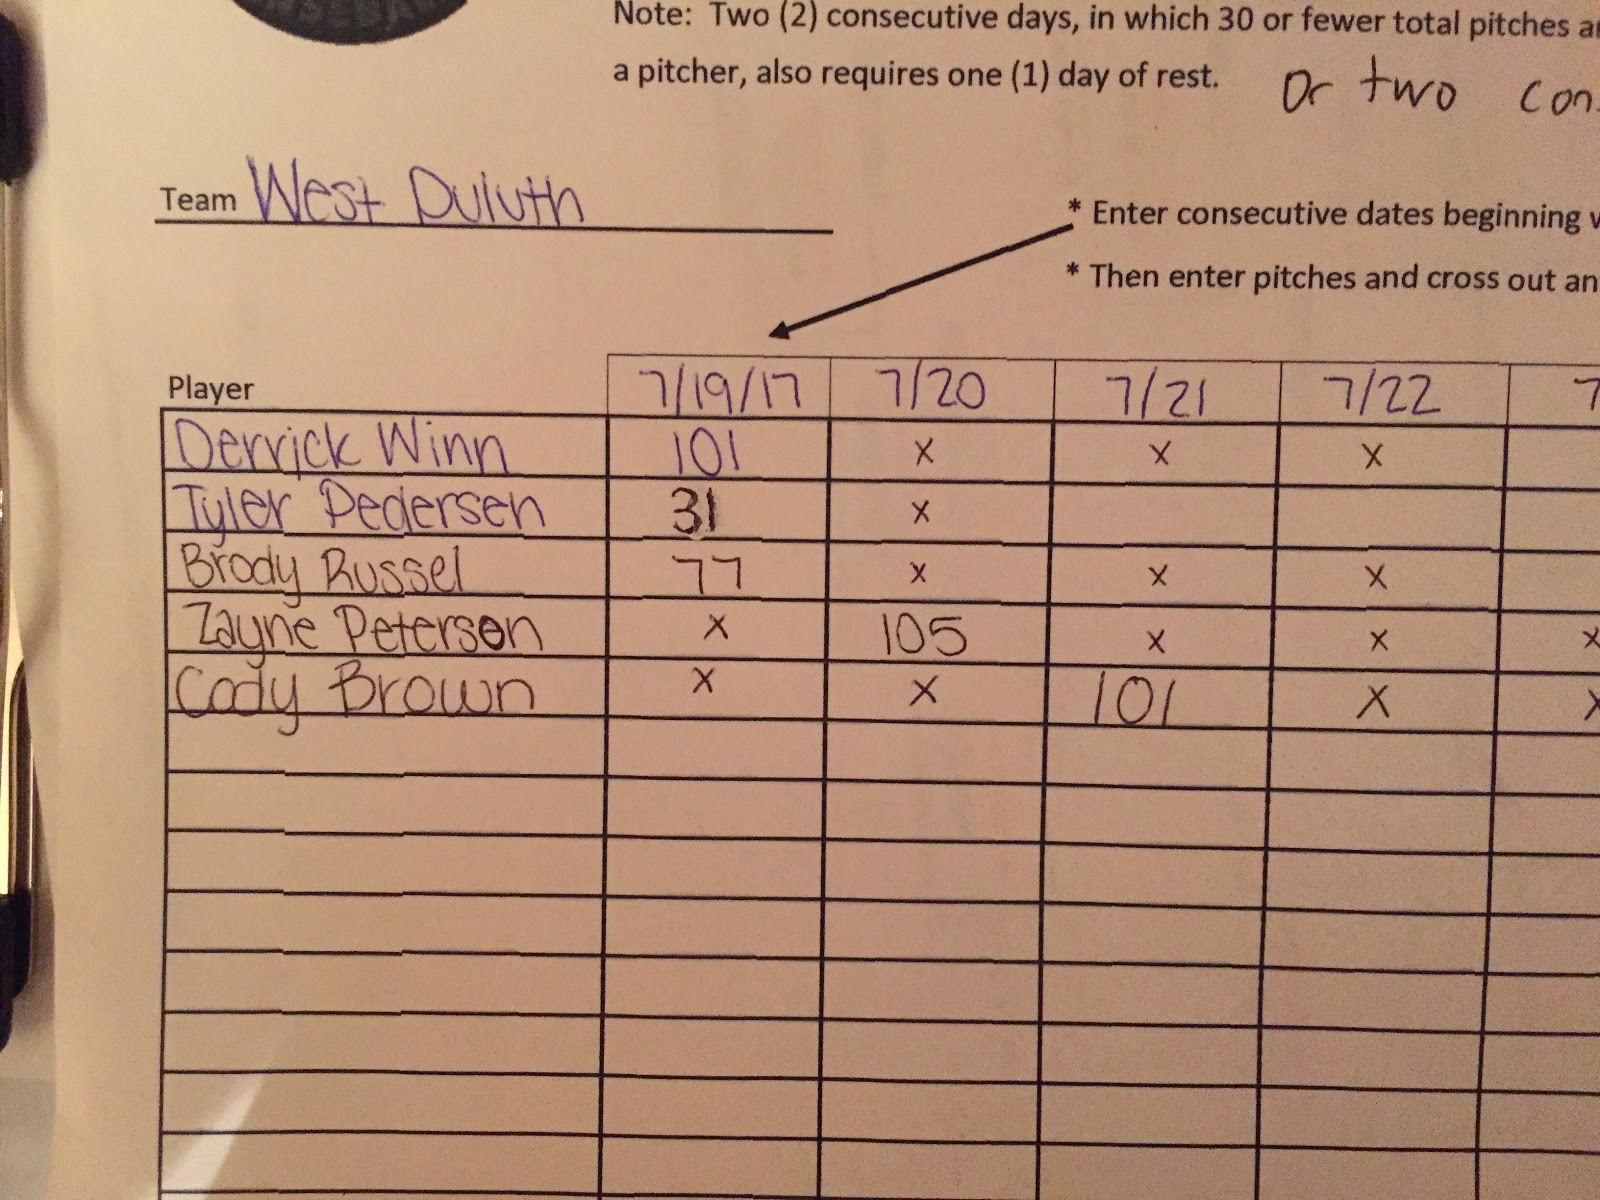 Note: Two (2) consecutive days, in which 30 or fewer total pitches
a pitcher, also requires one (1) day of rest. Or two
Team West Duluth
* Enter consecutive dates beginning
* Then enter pitches and cross out
Player 7/19/17 7/20 7/21 7/22
Derrick Winn 101 x x x
Tyler Pedersen 31 x
Brody Russel 77 x x x
Zayne Peterson x 105 x x x
Cody Brown x x 101 x x